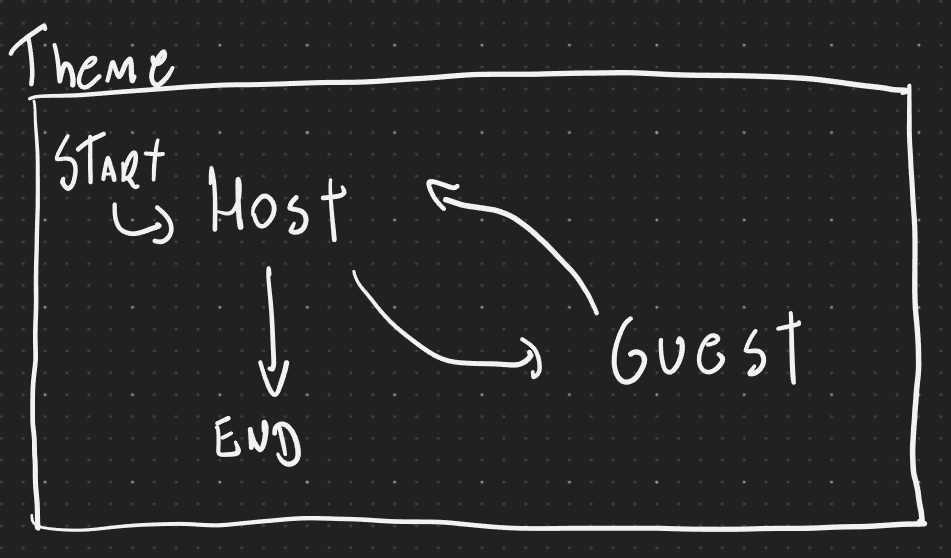 Theme
START
Host
Guest
END